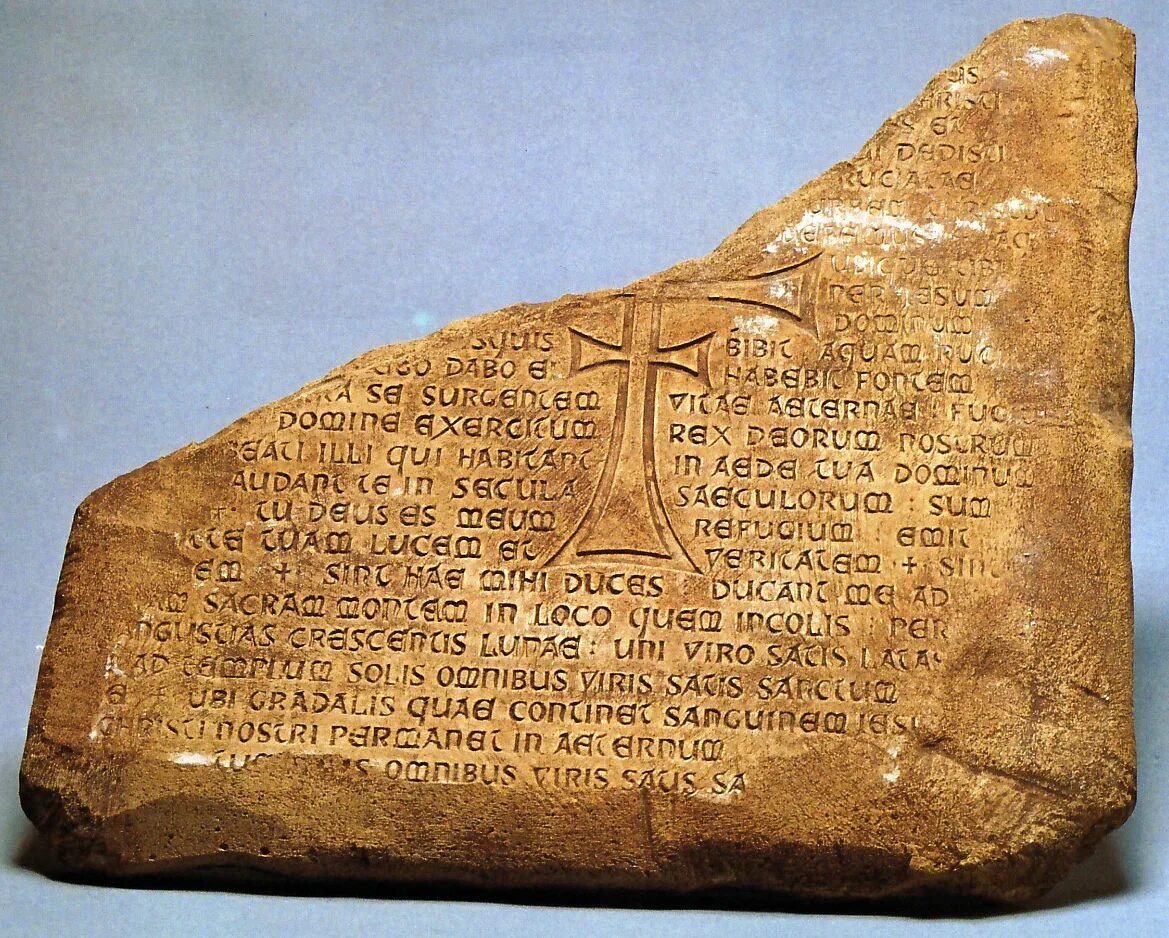 ET
DEDISTI
UBIQUE TIBI
PER IESUM
DOMINUM
SQUIS BIBIT AQUAM
DABO EI HABEBIT FONTEM
SE SURGENTEM VITAE AETERNAE :
DOMINE EXERCITUM REX DEORUM NOSTRUM
ILLI QUI HABITANT IN AEDE TUA DOMINUM
AUDANT TE IN SECULA SAECULORUM : SUM
+ TU DEUS ES MEUM REFUGIUM : EMIT
TUAM LUCEM ET VERITATEM + SINT
EM + SINT HAE MIHI DUCES : DUCANT ME AD
SACRAM MONTEM IN LOCO QUEM INCOLIS : PER
ANGUSTIAS CRESCENTIS LUNAE : UNI VIRO SATIS LATAS
AD TEMPLUM SOLIS OMNIBUS VIRIS SATIS SANCTUM
+ UBI GRADALIS QUAE CONTINET SANGUINEM IESU
CHRISTI NOSTRI PERMANET IN AETERNUM
OMNIBUS VIRIS SATIS SA